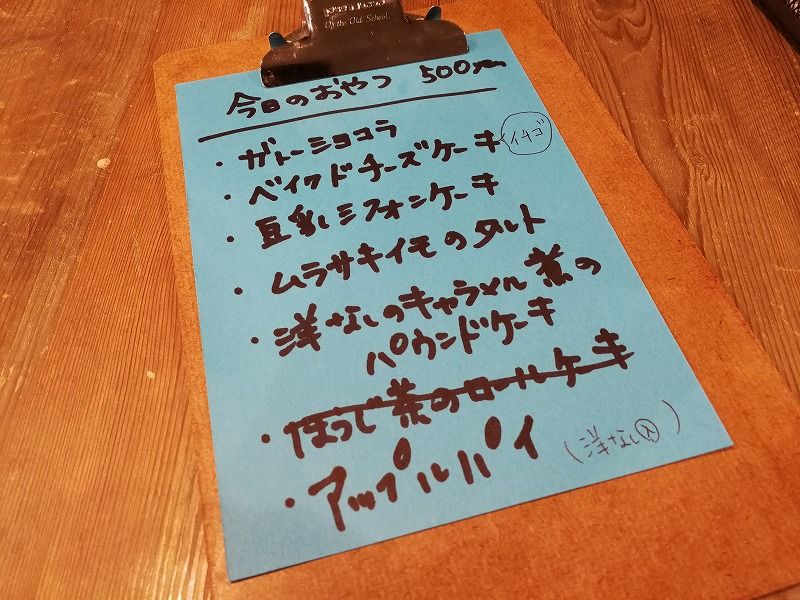 Of the Old School
今日のおやつ 500yen
・ガトーショコラ
・ベイクドチーズケーキ イチゴ
・豆乳シフォンケーキ
・ムラサキイモのタルト
・洋なしのキャラメル煮の
パウンドケーキ
・ほうじ茶のロールケーキ
・アップルパイ (洋なし入)